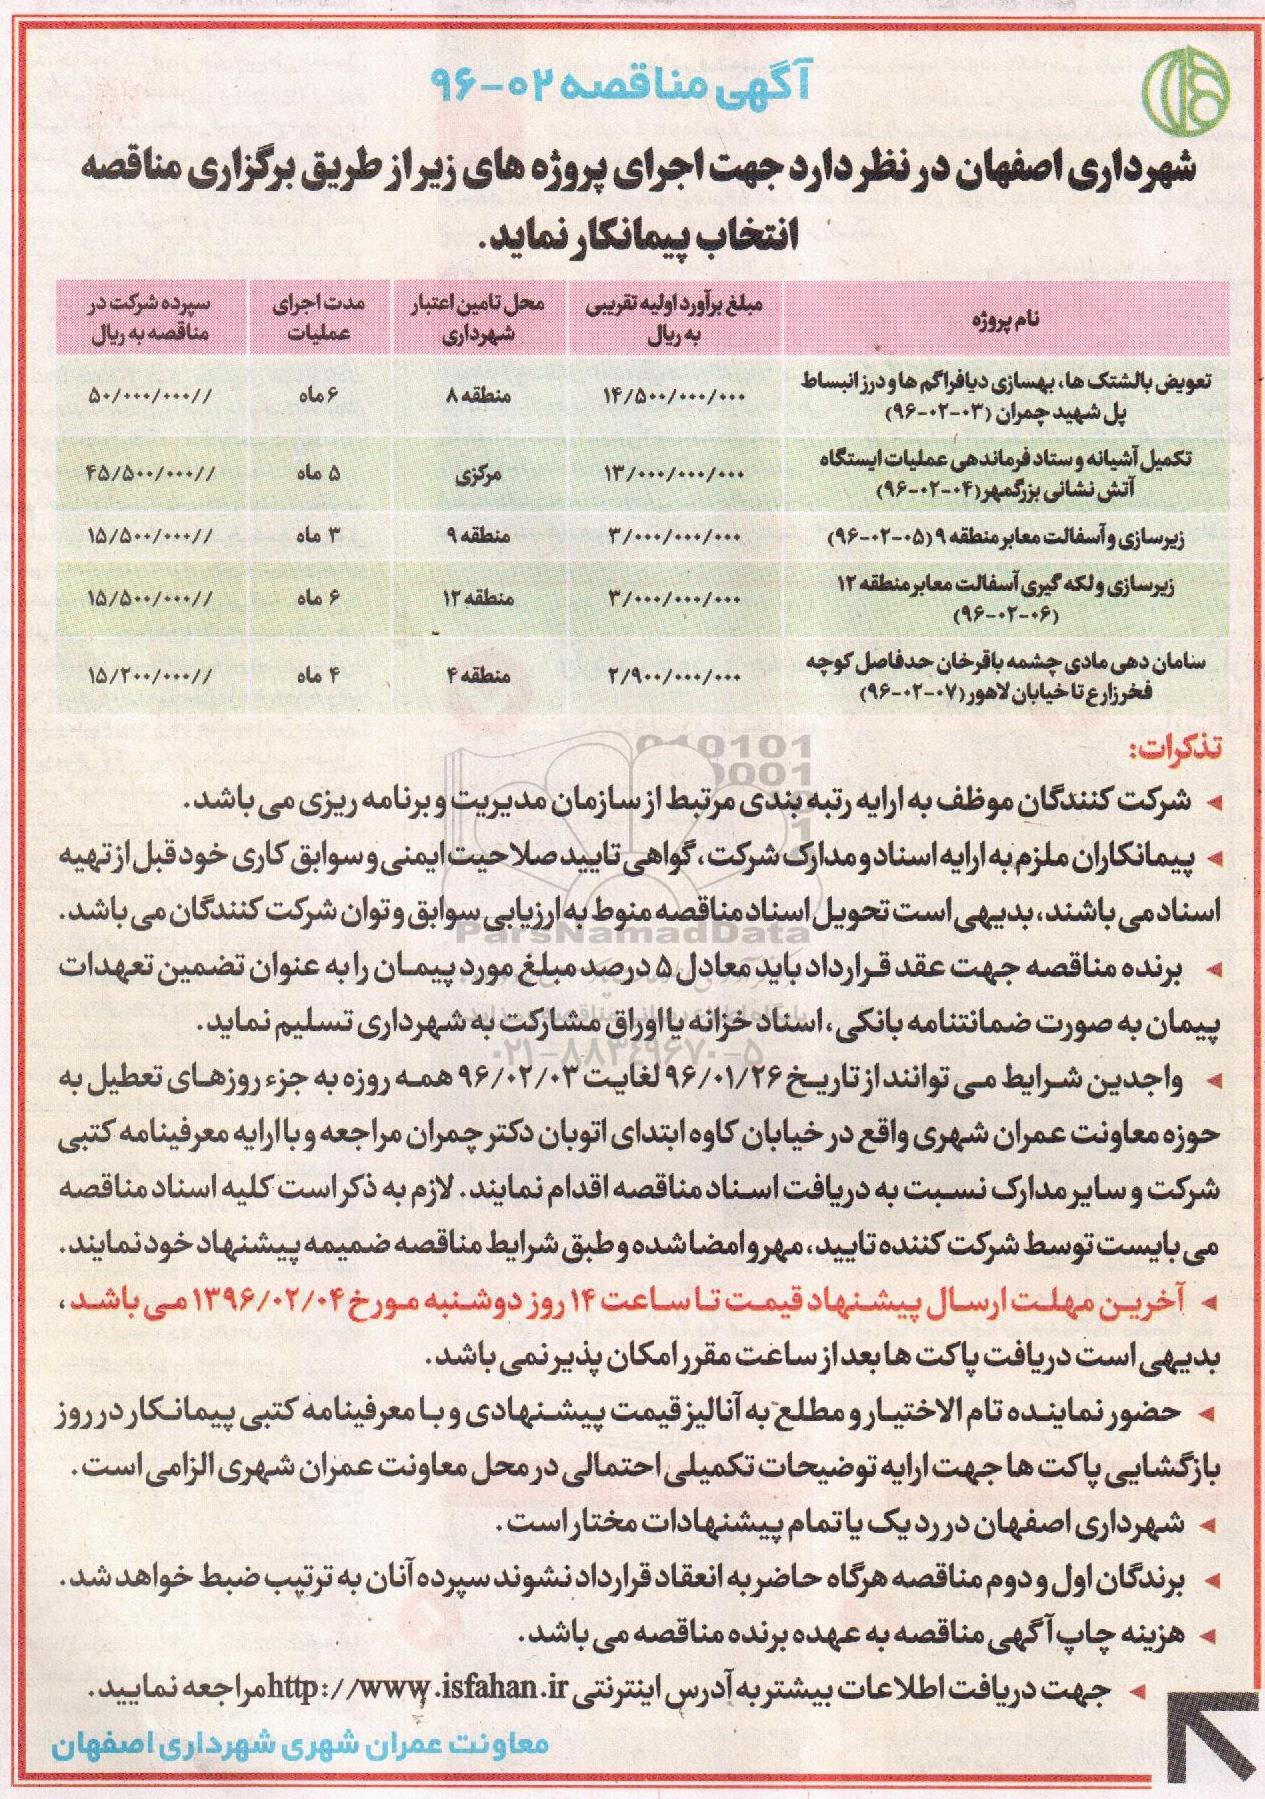 آگهی مناقصه ۰۲-۹۶
شهرداری اصفهان در نظر دارد جهت اجرای پروژه های زیر از طریق برگزاری مناقصه
انتخاب پیمانکار نماید.
نام پروژه | مبلغ برآورد اولیه تقریبی به ریال | محل تامین اعتبار شهرداری | مدت اجرای عملیات | سپرده شرکت در مناقصه به ریال
تعویض بالشتک ها، بهسازی دیافراگم ها و درز انبساط پل شهید چمران (۰۳-۰۲-۹۶) | ۱۴/۵۰۰/۰۰۰/۰۰۰ | منطقه ۸ | ۶ ماه | ۵۰/۰۰۰/۰۰۰//
تکمیل آشیانه و ستاد فرماندهی عملیات ایستگاه آتش نشانی بزرگمهر (۰۴-۰۲-۹۶) | ۱۳/۰۰۰/۰۰۰/۰۰۰ | مرکزی | ۵ ماه | ۴۵/۵۰۰/۰۰۰//
زیرسازی و آسفالت معابر منطقه ۹ (۰۵-۰۲-۹۶) | ۳/۰۰۰/۰۰۰/۰۰۰ | منطقه ۹ | ۳ ماه | ۱۵/۵۰۰/۰۰۰//
زیرسازی و لکه گیری آسفالت معابر منطقه ۱۲ (۰۶-۰۲-۹۶) | ۳/۰۰۰/۰۰۰/۰۰۰ | منطقه ۱۲ | ۶ ماه | ۱۵/۵۰۰/۰۰۰//
سامان دهی مادی چشمه باقرخان حدفاصل کوچه فخرزارع تا خیابان لاهور (۰۷-۰۲-۹۶) | ۲/۹۰۰/۰۰۰/۰۰۰ | منطقه ۴ | ۴ ماه | ۱۵/۲۰۰/۰۰۰//
تذکرات:
شرکت کنندگان موظف به ارایه رتبه بندی مرتبط از سازمان مدیریت و برنامه ریزی می باشد.
پیمانکاران ملزم به ارایه اسناد و مدارک شرکت، گواهی تایید صلاحیت ایمنی و سوابق کاری خود قبل از تهیه
اسناد می باشند، بدیهی است تحویل اسناد مناقصه منوط به ارزیابی سوابق و توان شرکت کنندگان می باشد.
ParsNamadData
برنده مناقصه جهت عقد قرارداد باید معادل ۵ درصد مبلغ مورد پیمان را به عنوان تضمین تعهدات
پیمان به صورت ضمانتنامه بانکی، اسناد خزانه یا اوراق مشارکت به شهرداری تسلیم نماید.
۰۲۱-۸۸۳۴۹۶۷۰-۵
واجدین شرایط می توانند از تاریخ ۹۶/۰۱/۲۶ لغایت ۹۶/۰۲/۰۳ همه روزه به جزء روزهای تعطیل به
حوزه معاونت عمران شهری واقع در خیابان کاوه ابتدای اتوبان دکتر چمران مراجعه و با ارایه معرفینامه کتبی
شرکت و سایر مدارک نسبت به دریافت اسناد مناقصه اقدام نمایند. لازم به ذکر است کلیه اسناد مناقصه
می بایست توسط شرکت کننده تایید، مهر و امضا شده و طبق شرایط مناقصه ضمیمه پیشنهاد خود نمایند.
آخرین مهلت ارسال پیشنهاد قیمت تا ساعت ۱۴ روز دوشنبه مورخ ۱۳۹۶/۰۲/۰۴ می باشد،
بدیهی است دریافت پاکت ها بعد از ساعت مقرر امکان پذیر نمی باشد.
حضور نماینده تام الاختیار و مطلع به آنالیز قیمت پیشنهادی و با معرفینامه کتبی پیمانکار در روز
بازگشایی پاکت ها جهت ارایه توضیحات تکمیلی احتمالی در محل معاونت عمران شهری الزامی است.
شهرداری اصفهان در رد یک یا تمام پیشنهادات مختار است.
برندگان اول و دوم مناقصه هرگاه حاضر به انعقاد قرارداد نشوند سپرده آنان به ترتیب ضبط خواهد شد.
هزینه چاپ آگهی مناقصه به عهده برنده مناقصه می باشد.
جهت دریافت اطلاعات بیشتر به آدرس اینترنتی http://www.isfahan.ir مراجعه نمایید.
معاونت عمران شهری شهرداری اصفهان